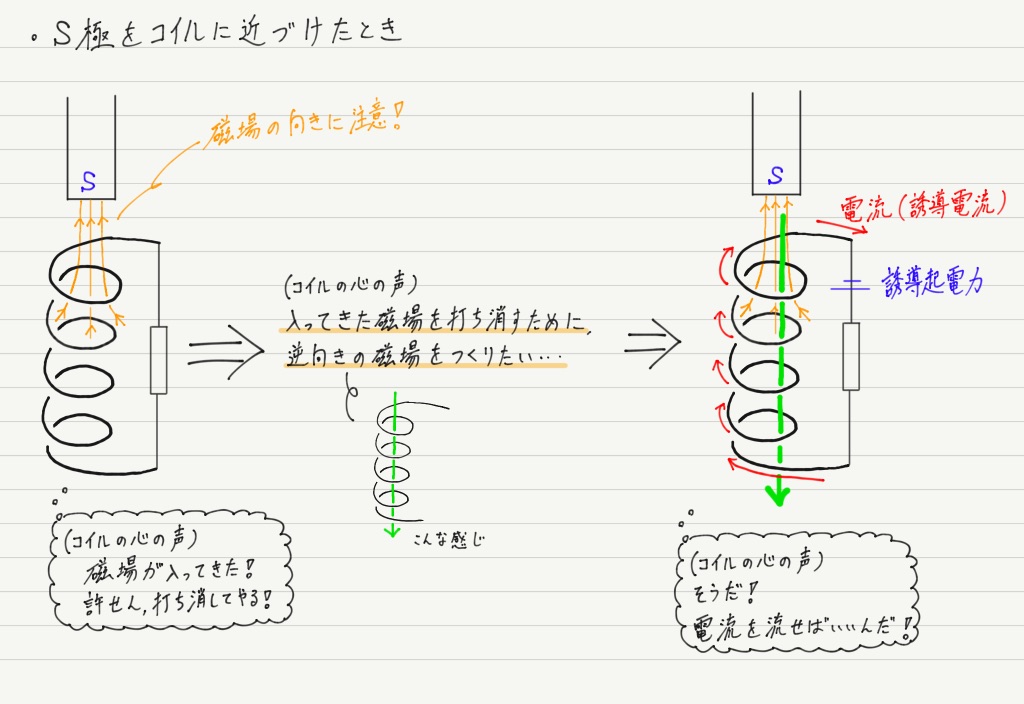 ・S極をコイルに近づけたとき
磁場の向きに注意!
S
(コイルの心の声)
入ってきた磁場を打ち消すために,
逆向きの磁場をつくりたい…
こんな感じ
(コイルの心の声)
磁場が入ってきた!
許せん,打ち消してやる!
S
電流(誘導電流)
誘導起電力
(コイルの心の声)
そうだ!
電流を流せばいいんだ!